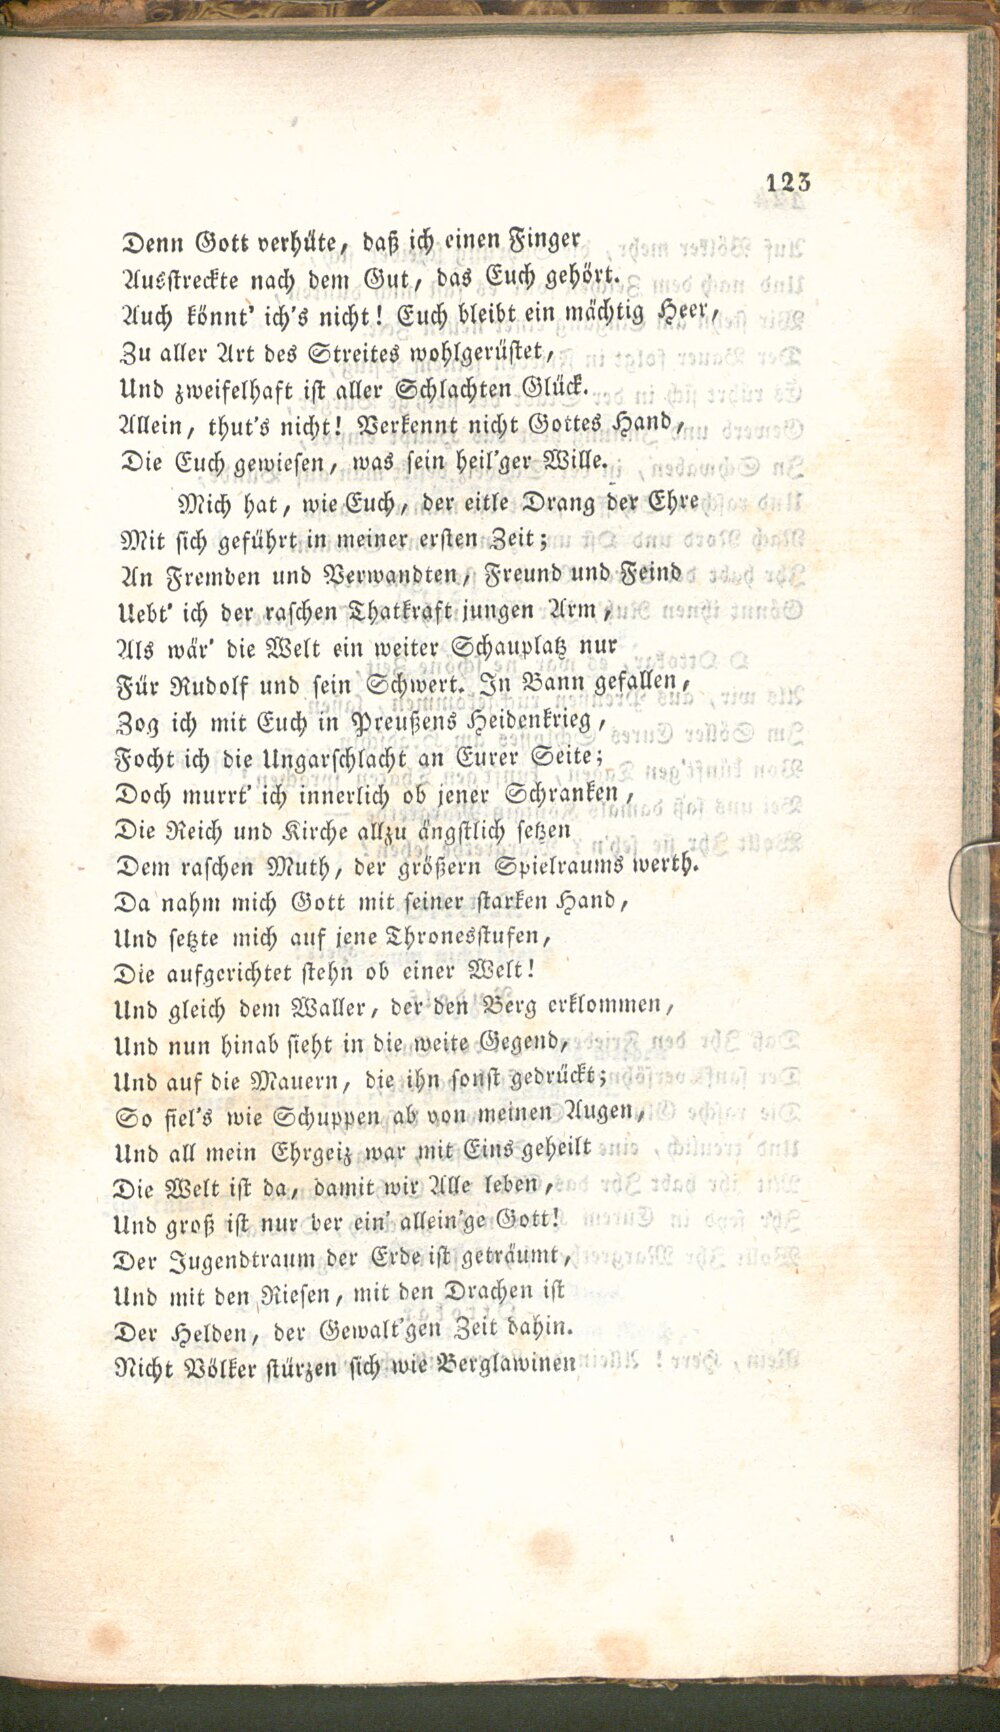 123
Denn Gott verhüte, daß ich einen Finger
Ausstreckte nach dem Gut, das Euch gehört.
Auch könnt' ich's nicht! Euch bleibt ein mächtig Heer,
Zu aller Art des Streites wohlgerüstet,
Und zweifelhaft ist aller Schlachten Glück.
Allein, thut's nicht! Verkennt nicht Gottes Hand,
Die Euch gewiesen, was sein heil'ger Wille.
Mich hat, wie Euch, der eitle Drang der Ehre
Mit sich geführt in meiner ersten Zeit;
An Fremden und Verwandten, Freund und Feind
Uebt' ich der raschen Thatkraft jungen Arm,
Als wär' die Welt ein weiter Schauplatz nur
Für Rudolf und sein Schwert. In Bann gefallen,
Zog ich mit Euch in Preußens Heidenkrieg,
Focht ich die Ungarschlacht an Eurer Seite;
Doch murrt' ich innerlich ob jener Schranken,
Die Reich und Kirche allzu ängstlich setzen
Dem raschen Muth, der größern Spielraums werth.
Da nahm mich Gott mit seiner starken Hand,
Und setzte mich auf jene Thronesstufen,
Die aufgerichtet stehn ob einer Welt!
Und gleich dem Waller, der den Berg erklommen,
Und nun hinab sieht in die weite Gegend,
Und auf die Mauern, die ihn sonst gedrückt;
So fiel's wie Schuppen ab von meinen Augen,
Und all mein Ehrgeiz war mit Eins geheilt
Die Welt ist da, damit wir Alle leben,
Und groß ist nur der ein' allein'ge Gott!
Der Jugendtraum der Erde ist geträumt,
Und mit den Riesen, mit den Drachen ist
Der Helden, der Gewalt'gen Zeit dahin.
Nicht Völker stürzen sich wie Berglawinen